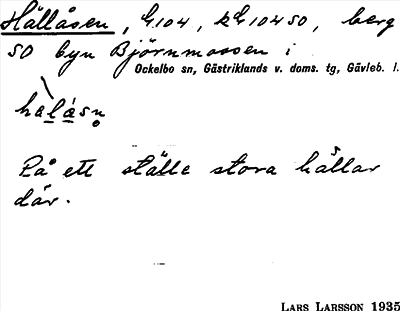 Hällåsen, h.104, kh10450, berg
SO byn Björnmossen i
Ockelbo sn, Gästriklands v. doms. tg, Gävleb. l.
hälåsn̥
På ett ställe stora hällar
där.
LARS LARSSON 1935